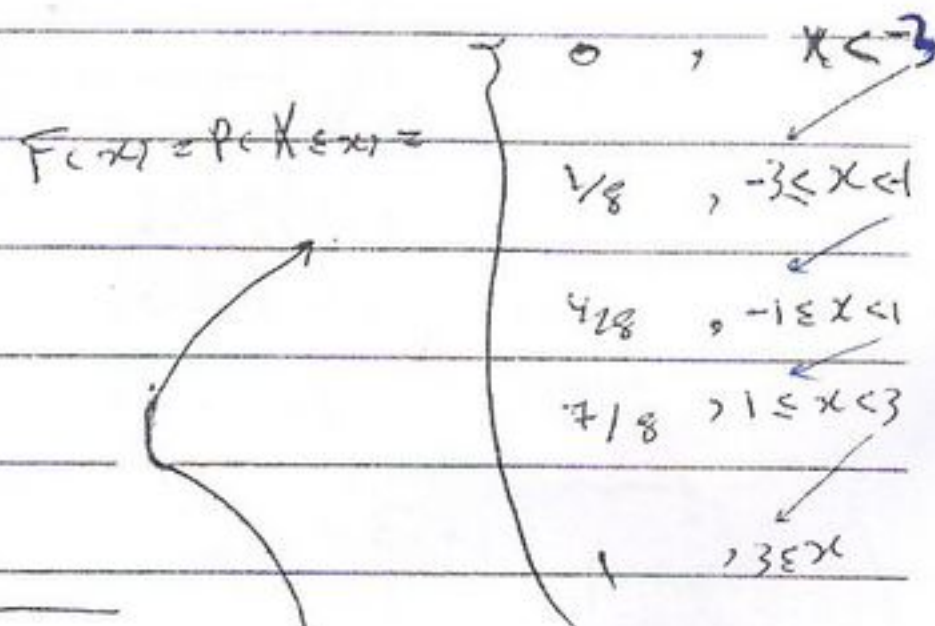 0 , x < -3
F(x) = P(X ≤ x) =
1/8 , -3 ≤ x < -1
4/8 , -1 ≤ x < 1
7/8 , 1 ≤ x < 3
1 , 3 ≤ x